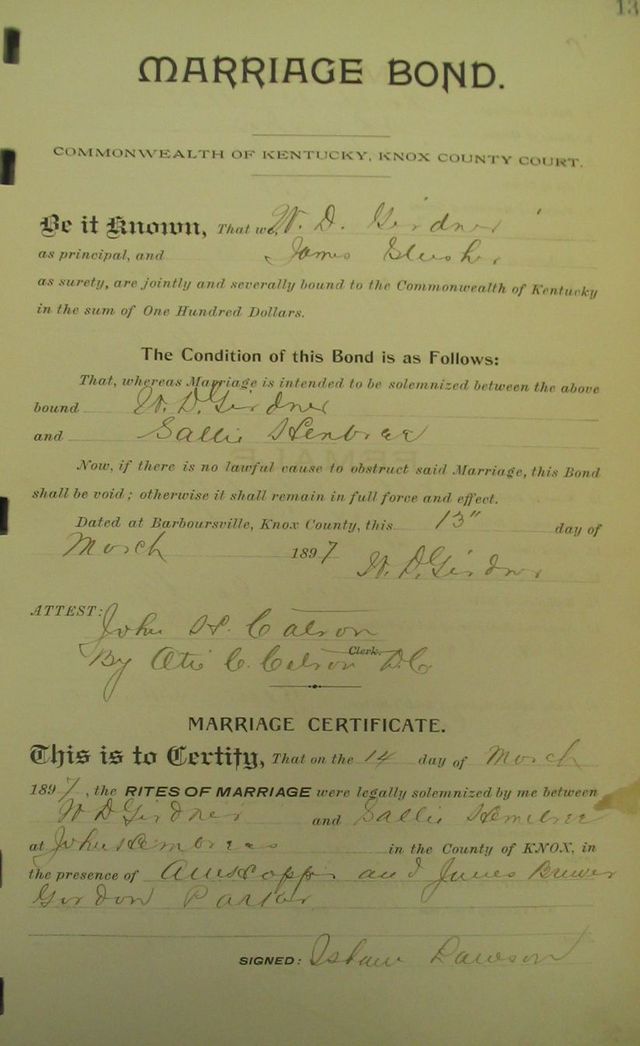 13
MARRIAGE BOND.
COMMONWEALTH OF KENTUCKY, KNOX COUNTY COURT.
Be it Known, That we, W. D. Girdner
as principal, and James Slusher
as surety, are jointly and severally bound to the Commonwealth of Kentucky
in the sum of One Hundred Dollars.
The Condition of this Bond is as Follows:
That, whereas Marriage is intended to be solemnized between the above
bound W. D. Girdner
and Sallie Hembree
Now, if there is no lawful cause to obstruct said Marriage, this Bond
shall be void; otherwise it shall remain in full force and effect.
Dated at Barboursville, Knox County, this 13" day of
March 1897
W. D. Girdner
ATTEST:
John H. Catron
By Otis C. Catron Clerk. D.C.
MARRIAGE CERTIFICATE.
This is to Certify, That on the 14 day of March
1897, the RITES OF MARRIAGE were legally solemnized by me between
W D Girdner and Sallie Hembree
at John Hembrees in the County of KNOX, in
the presence of and James Brewer
Gordon Parker
SIGNED: Isham Dawson